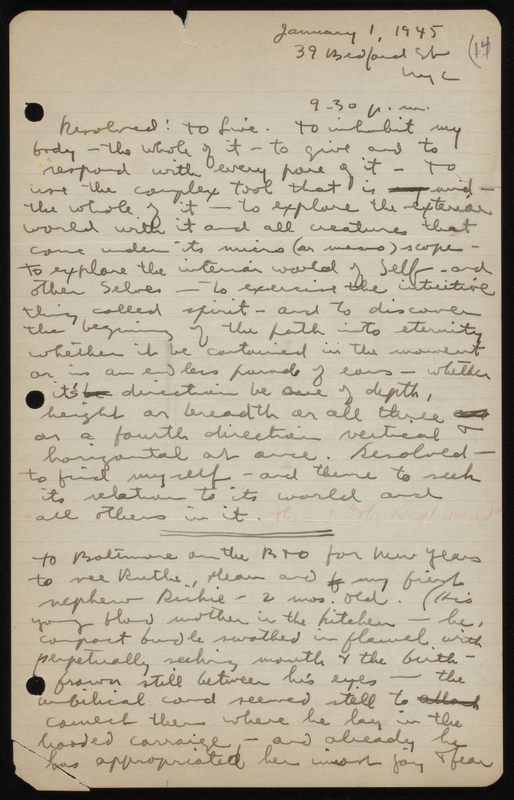 January 1, 1945
(14
39 Bedford St
NYC
9-30 p.m.
Resolved! To live. To inhabit my
body - the whole of it - to give and to
respond with every pore of it - To
use the complex tool that is mind -
the whole of it - to explore the exterior
world with it and all creatures that
come under its micro (or macro) scope -
to explore the interior world of Self - and
other Selves - to exercise the intuitive
thing called spirit - and to discover
the begining of the path into eternity
whether it be contained in the moment
or is an endless parade of eons - whether
it's direction be one of depth,
height or breadth or all three
or a fourth direction vertical &
horizontal at once. Resolved -
to find myself - and there to seek
its relation to its world and
all others in it.
To Baltimore on the B & O for New Years
to see Ruthe, and my first
nephew Richie - 2 mos. old. (His
young blond mother in the kitchen - he,
compact bundle swathed in flannel with
perpetually seeking mouth & the birth-
frown still between his eyes - the
umbilical cord seemed still to
connect them where he lay in the
hooded carraige - and already he
has appropriated her inmost joy & fear